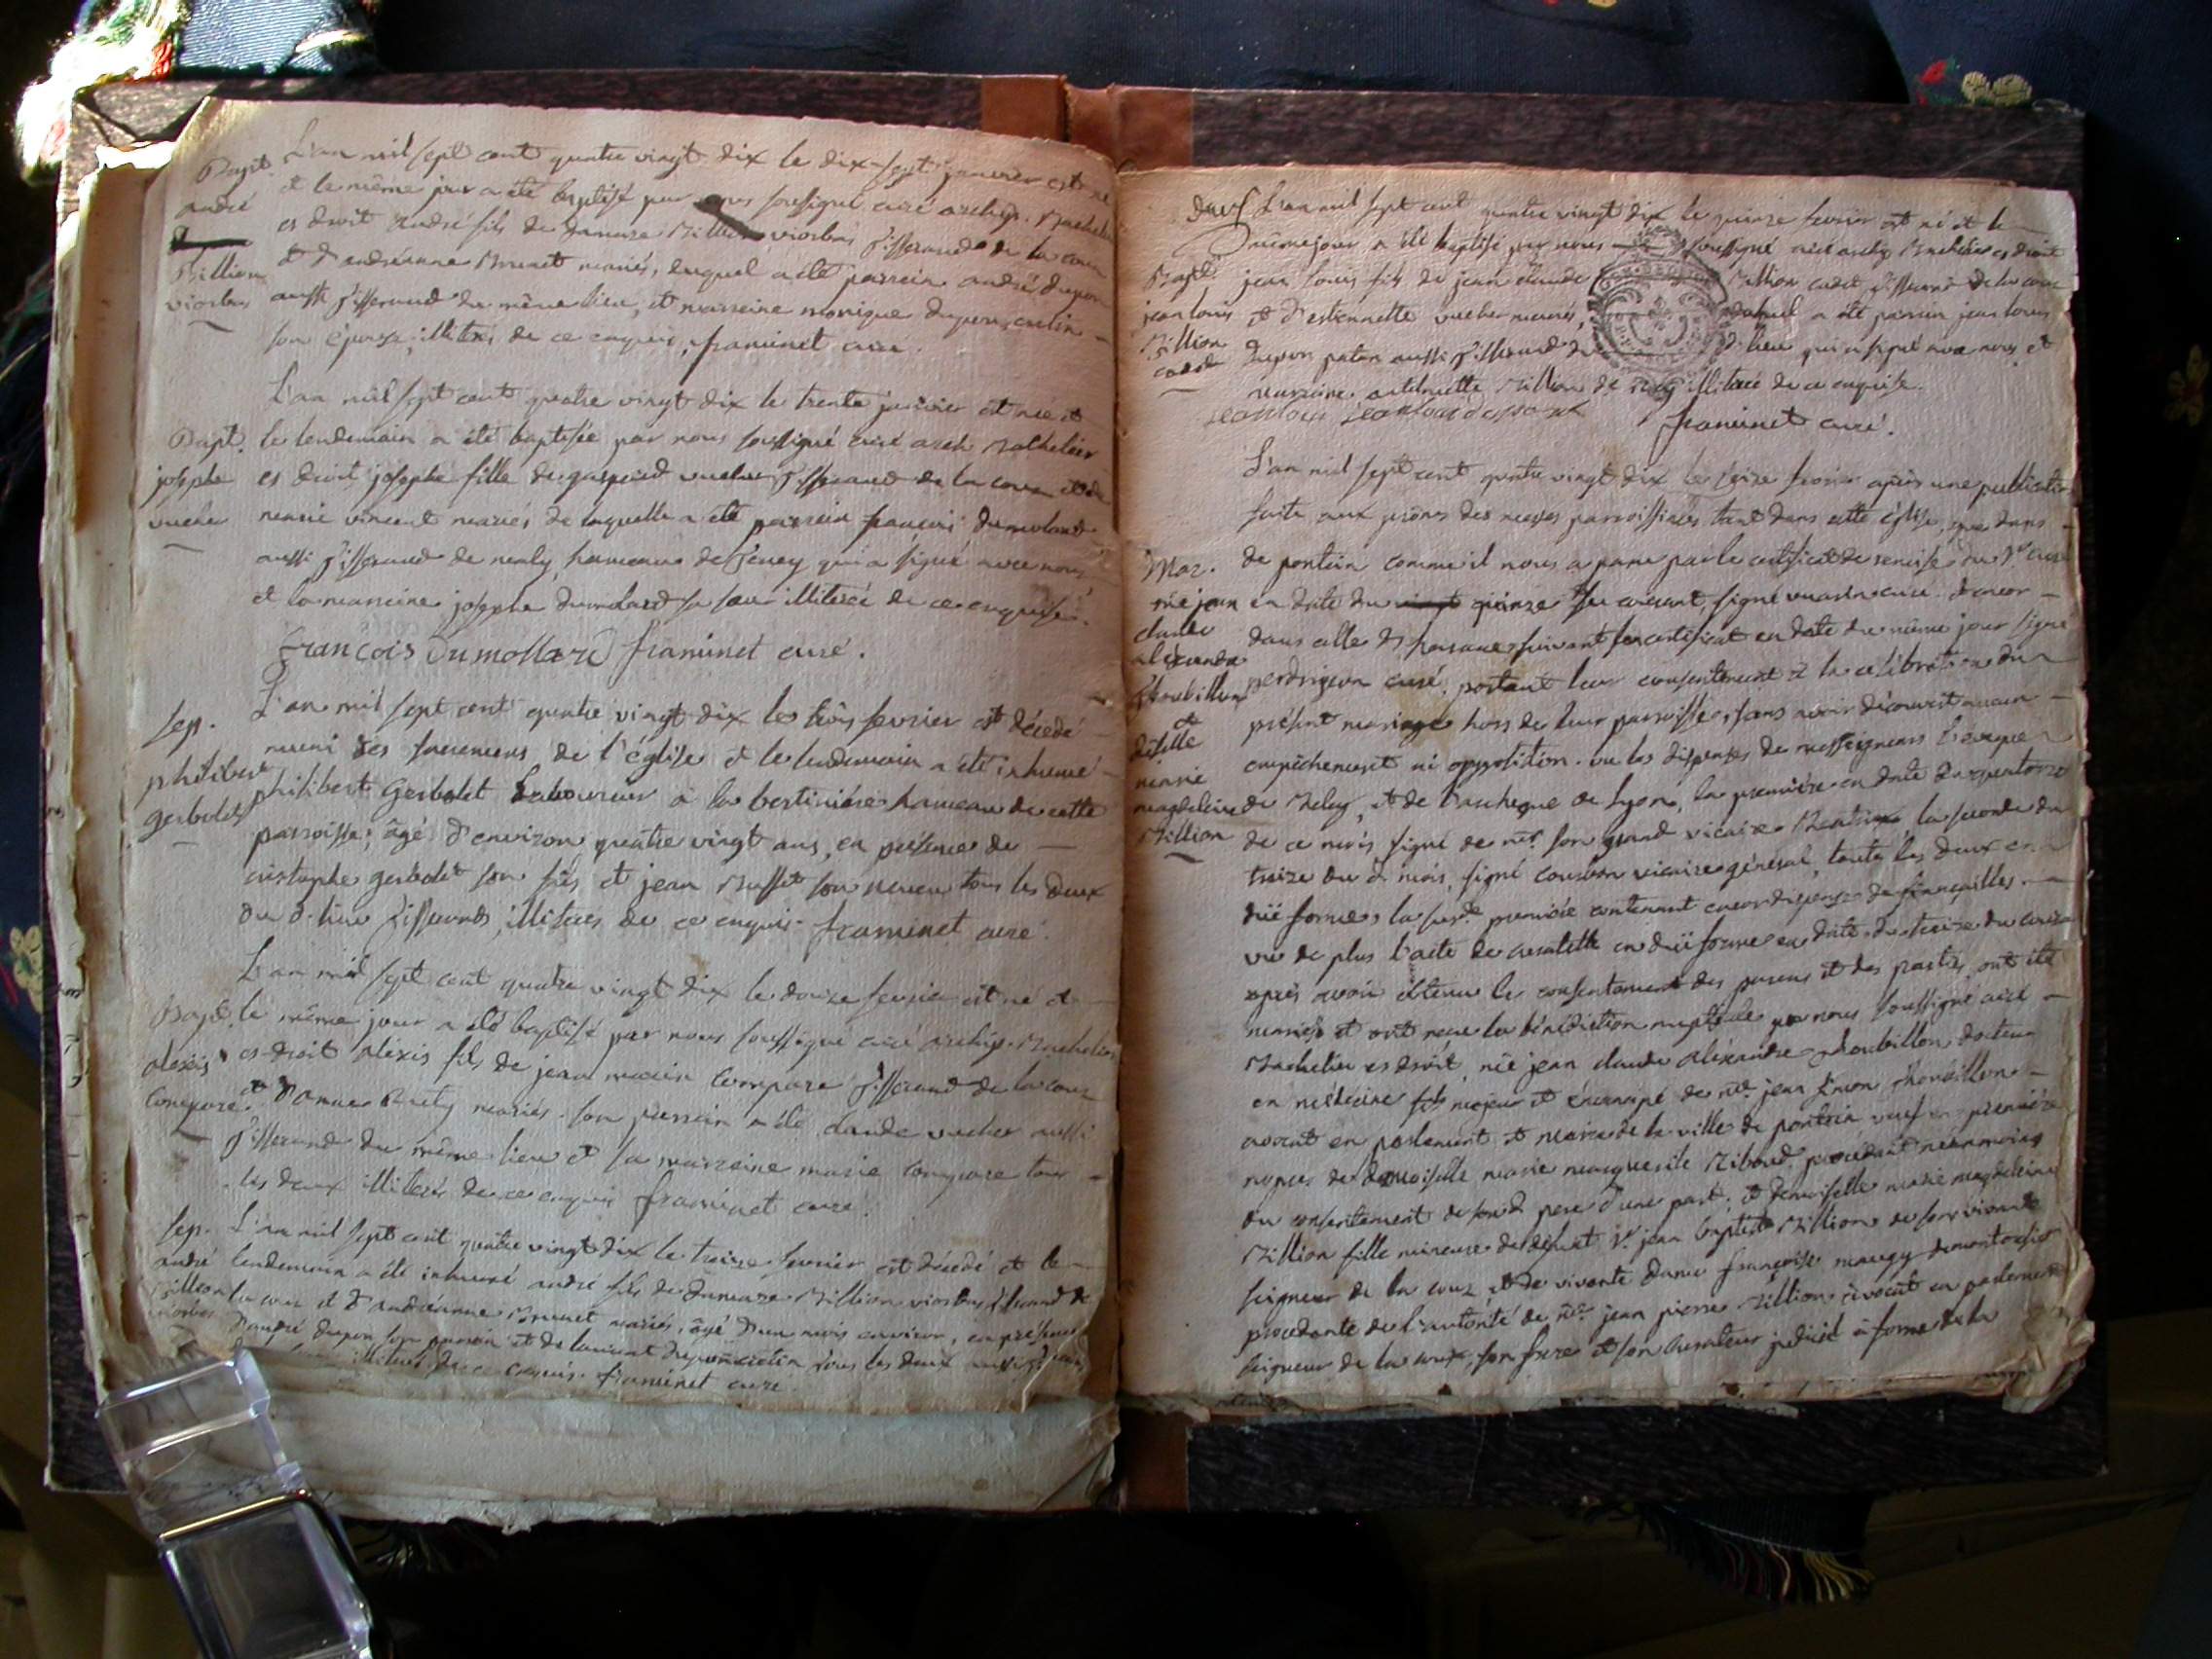 Bapt.
andré
Million
viorbas
L'an mil sept cent quatre vingt dix le dix-sept janvier est né
et le même jour a été baptisé par nous soussigné curé archip. Bachelier
es droit André fils de Million viorbas tisserand de la coux
et d'andréanne Brunet mariés, duquel a été parrein andré dupon
aussi tisserand du même lieu, et marreine monique dupon
son épouse, illitérés de ce enquis, framinet curé.
Bapt.
josephe
vucher
L'an mil sept cent quatre vingt dix le trente janvier est née et
le lendemain a été baptisée par nous soussigné curé arch Bachelier
es droit josephe fille de gaspard vucher tisserand de la coux et de
marie vincent mariés de laquelle a été parrein françois dumolard
aussi tisserand de hameau de qui a signé avec nous
et la marreine josephe dumolard sa sœur illiterée de ce enquise.
François Dumollard framinet curé.
sep.
philibert
gerbolet
L'an mil sept cent quatre vingt dix le trois fevrier est décédé
muni des sacremens de l'église et le lendemain a été inhumé
philibert gerbolet Laboureur à la bertinière hameau de cette
parroisse, âgé d'environ quatre vingt ans, en présence de
cristophe gerbolet son fils et jean Buffet son neveu tous les deux
du d. lieu tisserands, illitérés de ce enquis. framinet curé.
Bapt.
alexis
compare
L'an mil sept cent quatre vingt dix le douze fevrier est né et
le même jour a été baptisé par nous soussigné curé archip. Bachelier
es droit alexis fils de jean marin Compare tisserand de la coux
et d'anne mariés. son parrein a été claude vucher aussi
tisserand du même lieu et sa marreine marie compare tous
les deux illiterés de ce enquis framinet curé.
sep.
andré
Million
viorbas
L'an mil sept cent quatre vingt dix le treize fevrier est décédé et le
lendemain a été inhumé andré fils de Million viorbas tisserand de
la coux et d'andréanne Brunet mariés, âgé d'un mois environ, en présence
d'andré dupon son parrein et de laurent dupon tous les deux
illiterés de ce enquis. framinet curé.
Bapt.
jean louis
Million
cadet
L'an mil sept cent quatre vingt dix le quinze fevrier est né et le
même jour a été baptisé par nous soussigné curé archip Bachelier es droit
jean louis fils de jean claude Million cadet tisserand de la coux
et d'estiennette vucher mariés, duquel a été parrein jean louis
dupon aussi tisserand du d. lieu qui a signé avec nous, et
marreine antelmette Million de illiterée de ce enquise.
jean louis dupont
framinet curé.
Mar.
mre jean
claude
alexandre
Chevrillon
et
dlle
marie
magdeleine
Million
L'an mil sept cent quatre vingt dix le seize fevrier après une publication
faite aux prônes des messes parroissiales tant dans cette église, que dans
de pontein comme il nous a paru par le certificat de remise du Sr curé
en date du quinze du courant, signé curé. encor
dans celle de suivant son certificat en date du même jour signé
perdrigeon curé, portant leur consentement à la célébration du
présent mariage hors de leur parroisse, sans avoir découvert aucun
empêchement ni opposition. vu les dispenses de messeigneurs l'évêque
de Beley, et de l'archeveque de Lyon, la première en date du quatorze
de ce mois signé de mr son grand vicaire, la seconde du
treize du d. mois, signé courbon vicaire général, toutes les deux en
düe forme, la susde première contenant encor dispense de fiançailles.
vu de plus l'acte de curatelle en düe forme en date du treize du courant
après avoir obtenu le consentement des parens et des parties, ont été
mariés et ont reçu la bénédiction nuptiale par nous soussigné curé
Bachelier es droit, mre jean claude alexandre Chevrillon, docteur
en médecine fils majeur et émancipé de mre jean simon Chevrillon
avocat en parlement et maire de la ville de pontein veuf en premières
noces de demoiselle marie marguerite Riboud, procédant néanmoins
du consentement de son d. père d'une part, et demoiselle marie magdeleine
Million fille mineure de défunt Sr jean baptiste Million de son vivant
seigneur de la coux, et de vivante dame françoise
procédante de l'autorité de mre jean pierre Million avocat en parlement
seigneur de la coux, son frere et son curateur judiciel à forme de la